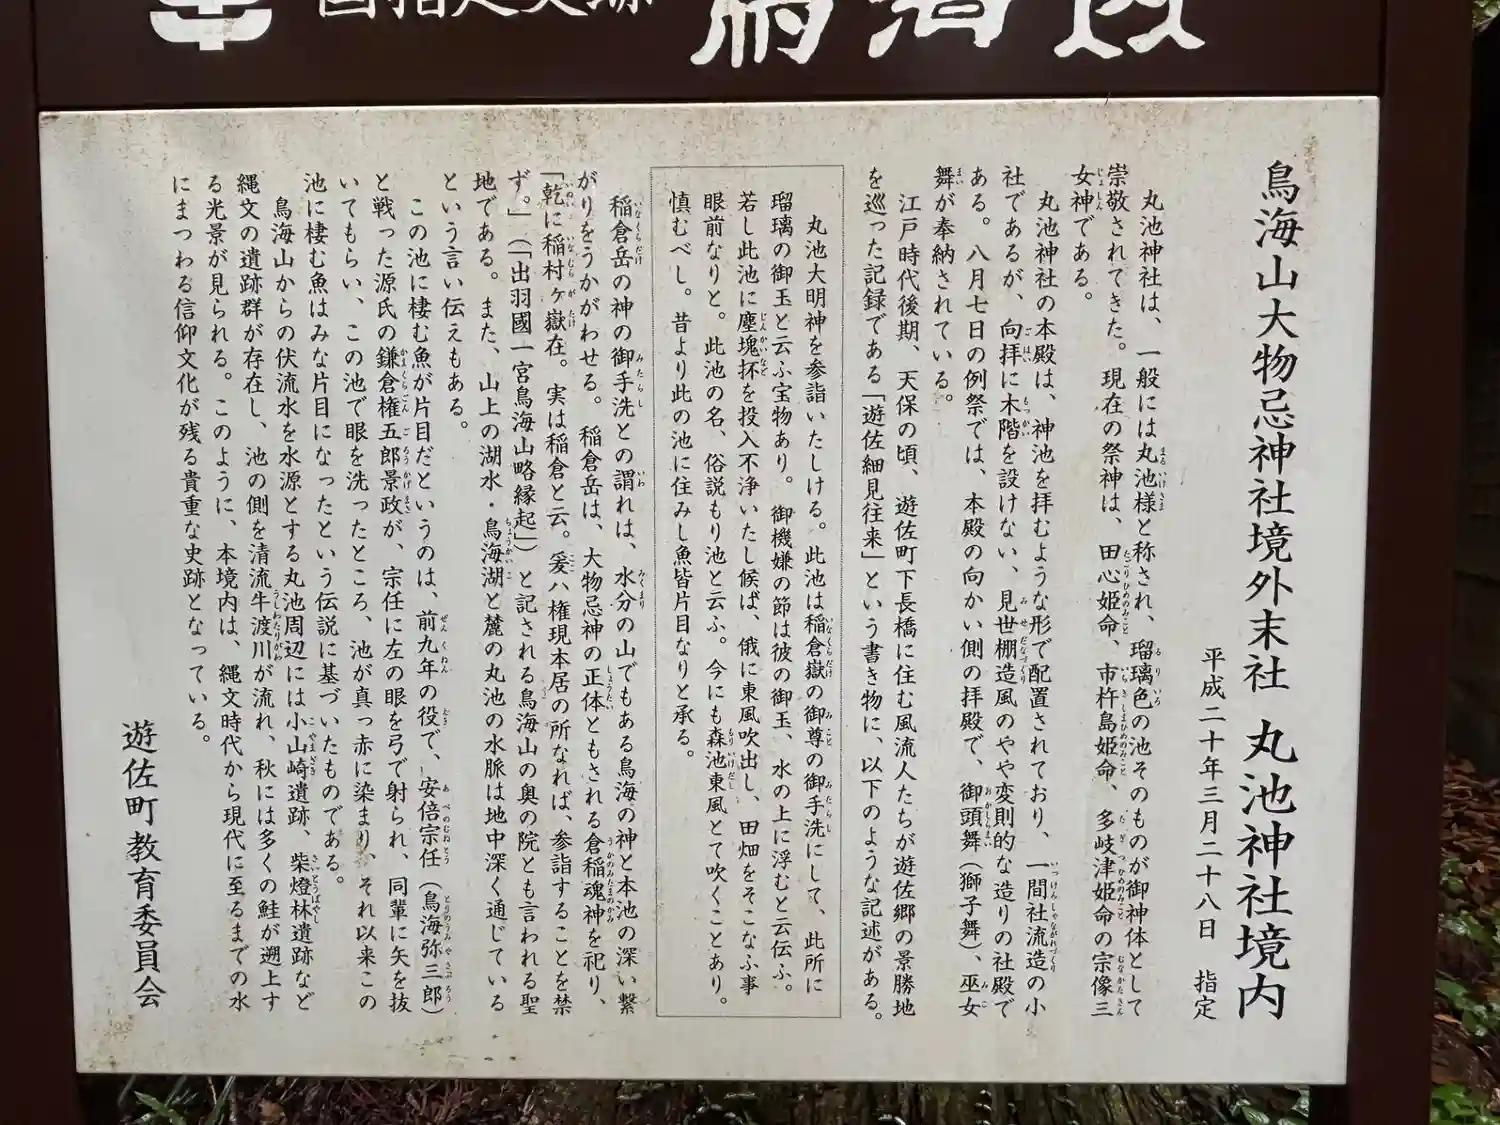 国指定史跡 鳥海山
鳥海山大物忌神社境外末社 丸池神社境内
平成二十年三月二十八日 指定
丸池神社は、一般には丸池様と称され、瑠璃色の池そのものが御神体として
崇敬されてきた。現在の祭神は、田心姫命、市杵島姫命、多岐津姫命の宗像三
女神である。
丸池神社の本殿は、神池を拝むような形で配置されており、一間社流造の小
社であるが、向拝に木階を設けない、見世棚造風のやや変則的な造りの社殿で
ある。八月七日の例祭では、本殿の向かい側の拝殿で、御頭舞（獅子舞）、巫女
舞が奉納されている。
江戸時代後期、天保の頃、遊佐町下長橋に住む風流人たちが遊佐郷の景勝地
を巡った記録である「遊佐細見往来」という書き物に、以下のような記述がある。
丸池大明神を参詣いたしける。此池は稲倉嶽の御尊の御手洗にして、此所に
瑠璃の御玉と云ふ宝物あり。御機嫌の節は彼の御玉、水の上に浮むと云伝ふ。
若し此池に塵塊抔を投入不浄いたし候ば、俄に東風吹出し、田畑をそこなふ事
眼前なりと。此池の名、俗説もり池と云ふ。今にも森池東風とて吹くことあり。
慎むべし。昔より此の池に住みし魚皆片目なりと承る。
稲倉岳の神の御手洗との謂れは、水分の山でもある鳥海の神と本池の深い繋
がりをうかがわせる。稲倉岳は、大物忌神の正体ともされる倉稲魂神を祀り、
「乾に稲村ヶ嶽在。実は稲倉と云。爰ハ権現本居の所なれば、参詣することを禁
ず。」（「出羽國一宮鳥海山略縁起」）と記される鳥海山の奥の院とも言われる聖
地である。また、山上の湖水・鳥海湖と麓の丸池の水脈は地中深く通じている
という言い伝えもある。
この池に棲む魚が片目だというのは、前九年の役で、安倍宗任（鳥海弥三郎）
と戦った源氏の鎌倉権五郎景政が、宗任に左の眼を弓で射られ、同輩に矢を抜
いてもらい、この池で眼を洗ったところ、池が真っ赤に染まり、それ以来この
池に棲む魚はみな片目になったという伝説に基づいたものである。
鳥海山からの伏流水を水源とする丸池周辺には小山崎遺跡、柴燈林遺跡など
縄文の遺跡群が存在し、池の側を清流牛渡川が流れ、秋には多くの鮭が遡上す
る光景が見られる。このように、本境内は、縄文時代から現代に至るまでの水
にまつわる信仰文化が残る貴重な史跡となっている。
遊佐町教育委員会